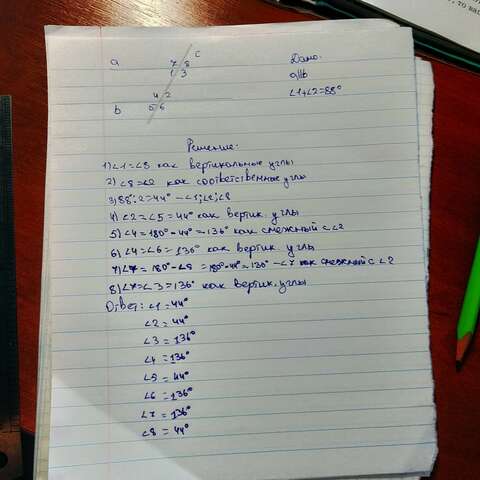 a
c
7 8
1 3
4 2
b
5 6
Дано:
a||b
∠1+∠2=88°
Решение:
1) ∠1=∠8 как вертикальные углы
2) ∠8=∠2 как соответственные углы
3) 88°:2=44° - ∠1;∠2;∠8
4) ∠2=∠5=44° как вертик. углы
5) ∠4=180°-44°=136° как смежный с ∠2
6) ∠4=∠6=136° как вертик. углы
7) ∠7=180°-∠8=180°-44°=136° - ∠7 как смежный с ∠2
8) ∠7=∠3=136° как вертик. углы
Ответ: ∠1=44°
∠2=44°
∠3=136°
∠4=136°
∠5=44°
∠6=136°
∠7=136°
∠8=44°